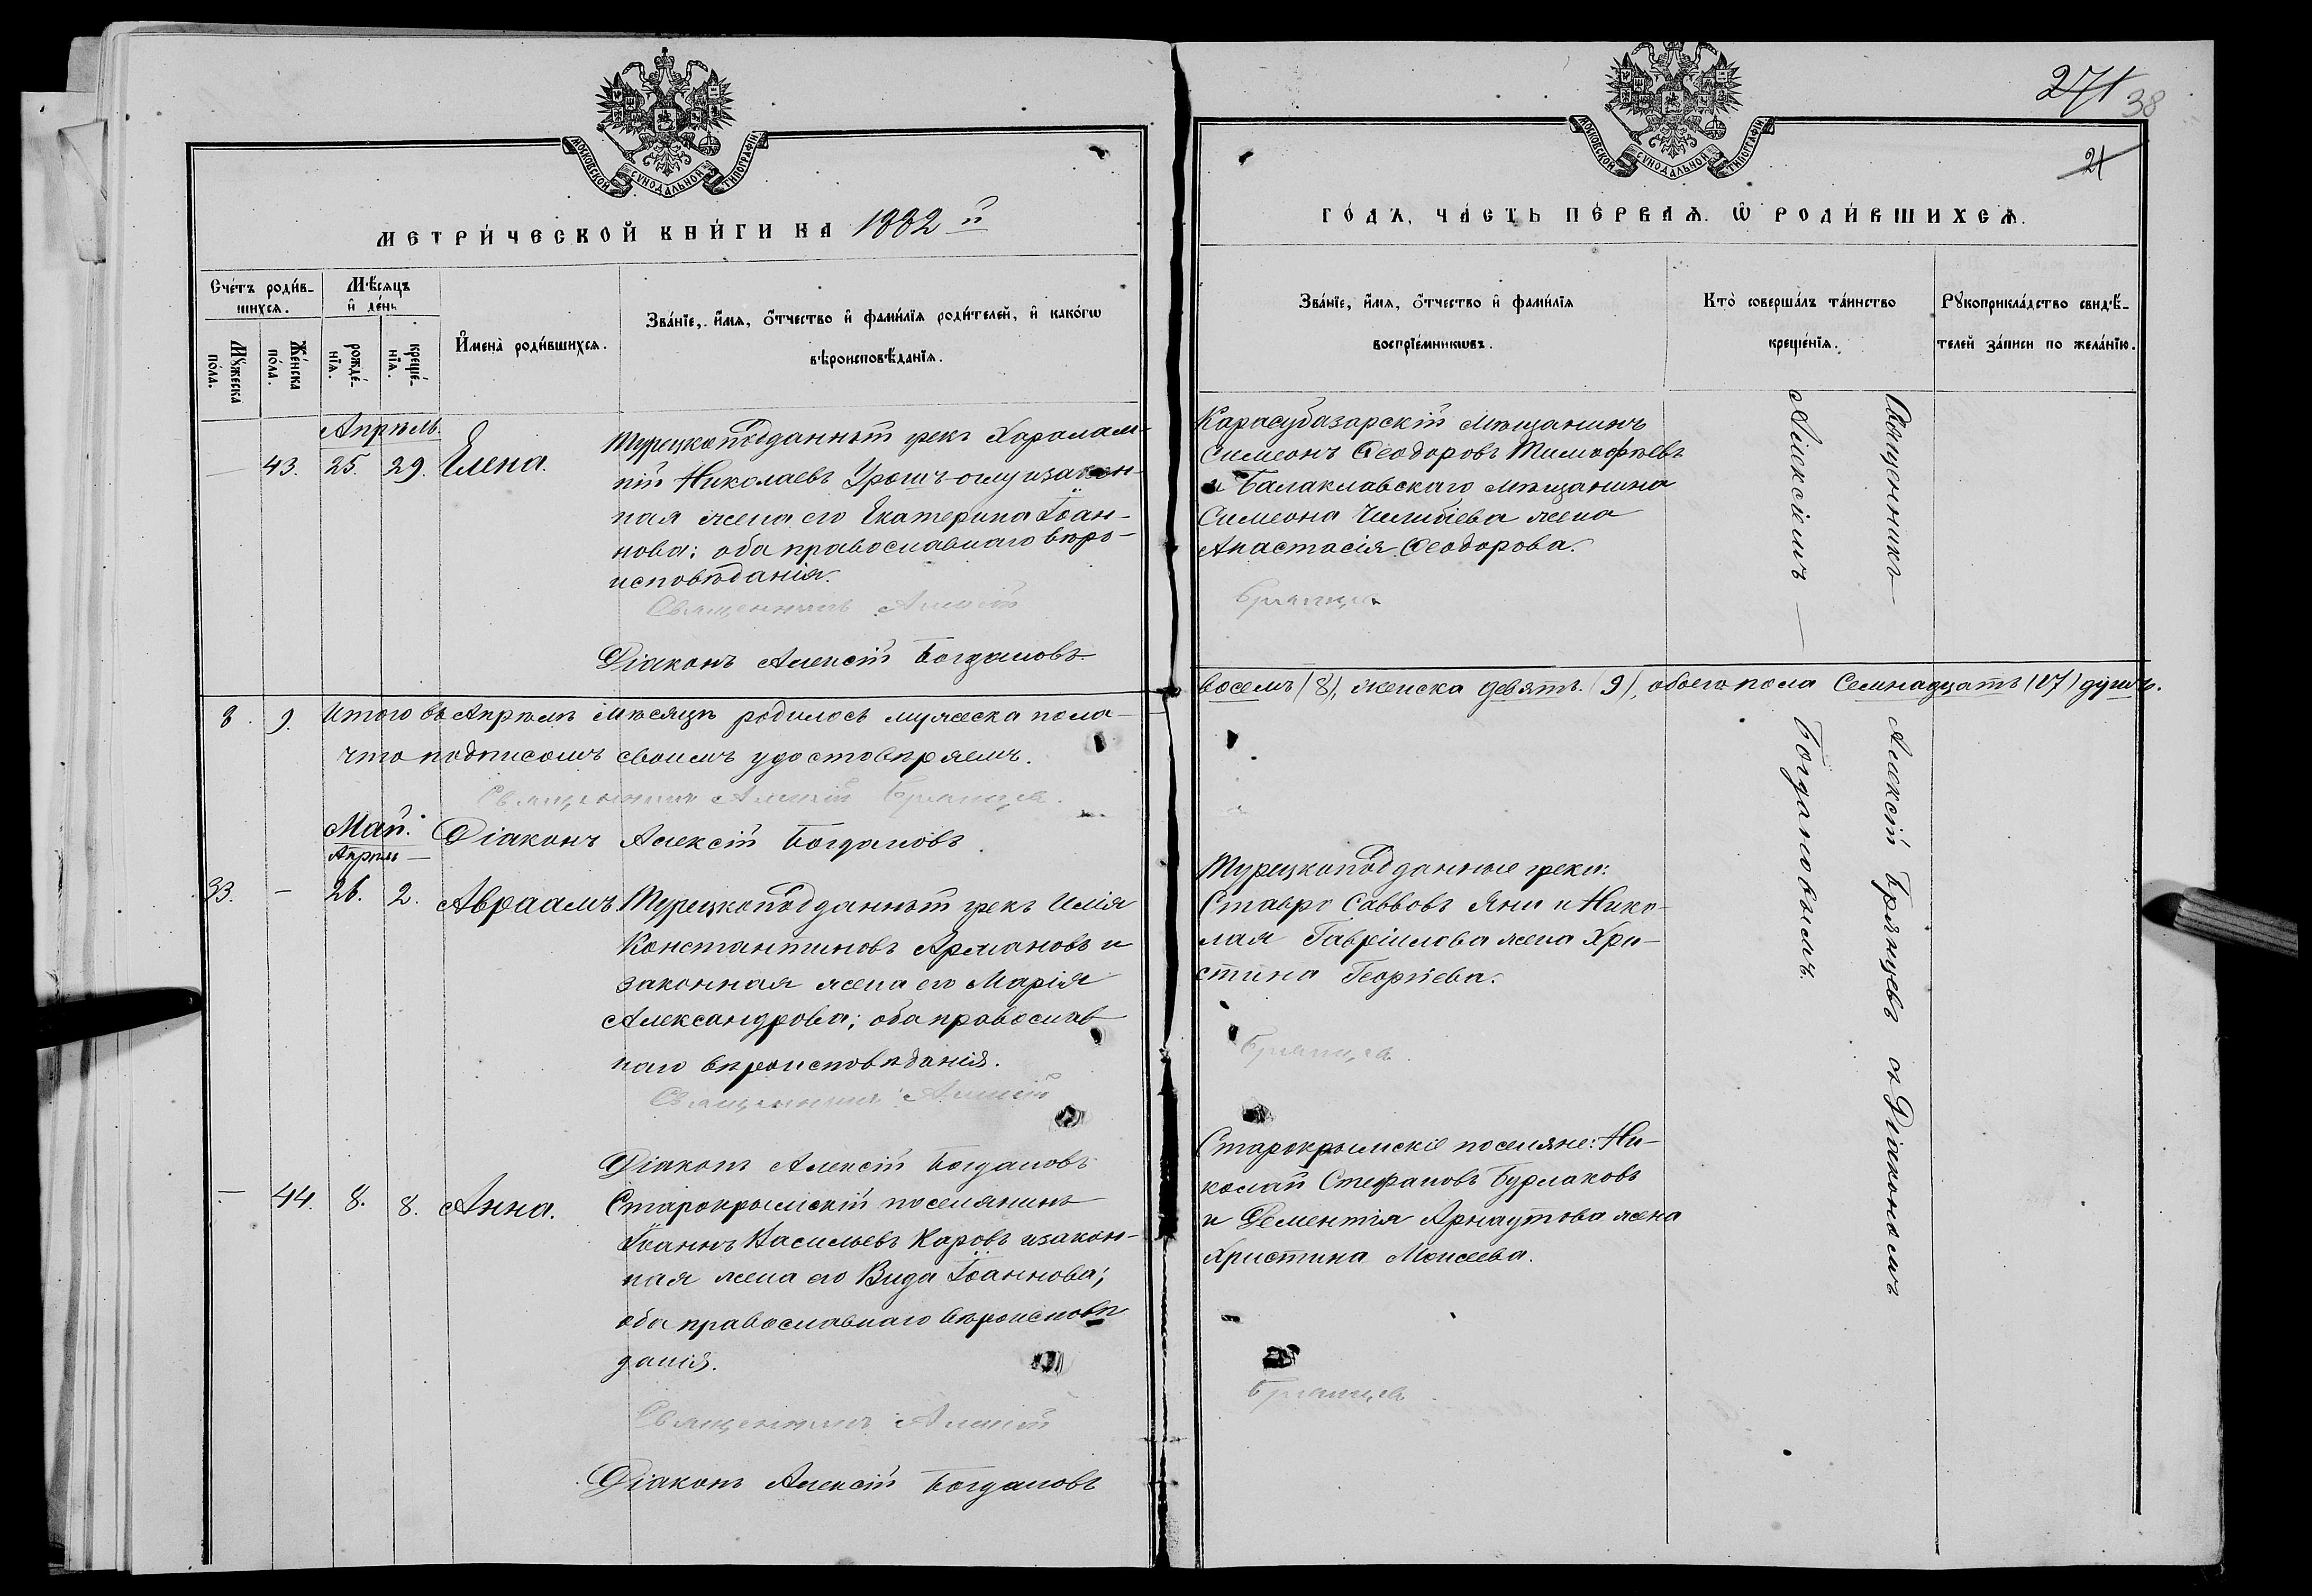 МОСКОВСКОЙ СУНОДАЛЬНОЙ ТИПОГРАФІИ
МЕТРИ́ЧЕСКОЙ КНИ́ГИ НА 1882 й
Сче́тъ роди́в-
шихсѧ.
Мѣ́сѧцъ
и҆ де́нь
Мꙋ́жеска
по́ла.
Же́нска
по́ла.
рожде́-
нїѧ.
креще́-
нїѧ.
И҆мена̀ роди́вшихсѧ.
Зва́нїе, и҆́мѧ, ѻ҆́тчество и҆ фами́лїѧ роди́телей, и҆ како́гѡ
вѣроисповѣ́данїѧ.
Апрѣль.
— 43. 25. 29. Елена.
Турецкоподданный грекъ Харалам-
пій Николаевъ Урошъ-оглу и закон-
ная жена его Екатерина Іоан-
нова; оба православнаго вѣро-
исповѣданія.
Священникъ Алексій
Діаконъ Алексій Богдановъ.
8. 9. Итого въ Апрѣлѣ мѣсяцѣ родилось мужеска пола
что подписомъ своимъ удостовѣряемъ.
Священникъ Алексій Брянцев.
Май.
Діаконъ Алексій Богдановъ.
Апрѣль —
33. — 26. 2. Авраамъ
Турецкоподданный грекъ Илія
Константиновъ Армановъ и
законная жена его Марія
Александрова; оба православ
наго вѣроисповѣданія.
Священникъ Алексій
Діаконъ Алексій Богдановъ
— 44. 8. 8. Анна.
Старокрымскій поселянинъ
Іоаннъ Васильевъ Каровъ и закон-
ная жена его Вида Іоаннова;
оба православнаго вѣроисповѣ
данія.
Священникъ Алексій
Діаконъ Алексій Богдановъ
271 38
21
МОСКОВСКОЙ СУНОДАЛЬНОЙ ТИПОГРАФІИ
ГО́ДЪ, ЧА́СТЬ ПЕ́РВАѦ. Ѡ҆ РОДИ́ВШИХСѦ.
Зва́нїе, и҆́мѧ, ѻ҆́тчество и҆ фами́лїѧ
воспрїе́мникѡвъ.
Кто̀ соверша́лъ та́инство
креще́нїѧ.
Рꙋкоприкла́дство свидѣ́-
телей за́писи по жела́нїю.
Карасубазарскій мѣщанинъ
Симеонъ Ѳеодоровъ Тимофѣевъ
и Балаклавскаго мѣщанина
Симеона Чилибіева жена
Анастасія Ѳеодорова.
Брянцев
восемь (8), женска девять (9), обоего пола Семнадцать (17) душъ.
Турецкоподданные греки:
Ставро Саввовъ Яни и Нико-
лая Гавріилова жена Хри-
стина Георгіева.
Брянцев
Старокрымскіе поселяне: Ни-
колай Стефановъ Бурлаковъ
и Дементія Арнаутова жена
Христина Моисеева.
Брянцев
Священникъ Алексій Брянцевъ съ Діакономъ
Алексіемъ — Богдановымъ.